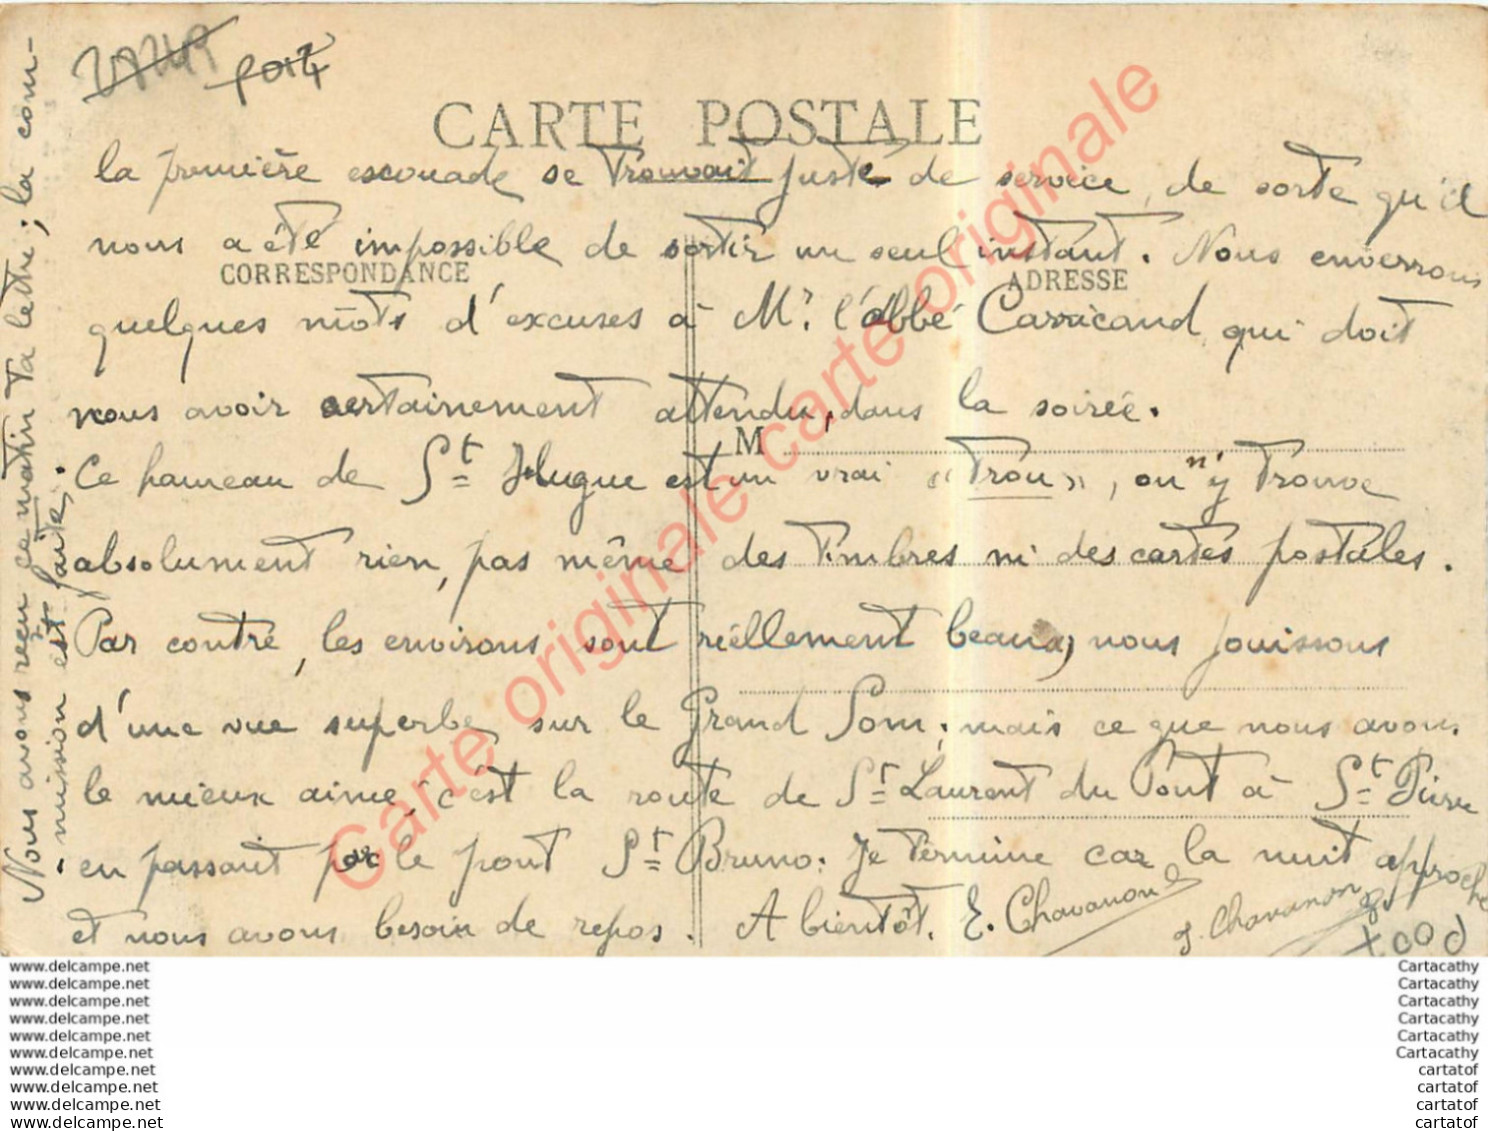 CARTE POSTALE
la première escouade se trouvait juste de service, de sorte qu'il
nous a été impossible de sortir un seul instant. Nous enverrons
CORRESPONDANCE
ADRESSE
quelques mots d'excuses à Mr. l'abbé Carricand qui doit
nous avoir certainement attendu, dans la soirée.
M
Ce hameau de St Hugue est un vrai « trou », on n'y trouve
absolument rien, pas même des timbres ni des cartes postales.
Par contre, les environs sont réellement beaux, nous jouissons
d'une vue superbe sur le Grand Som; mais ce que nous avons
le mieux aimé, c'est la route de St Laurent du Pont à St Pierre
en passant par le pont St Bruno. Je termine car la nuit approche
et nous avons besoin de repos. A bientôt. E. Chavanon
J. Chavanon
Nous avons reçu ce matin ta lettre; la com-
-mission est faite.
Carte originale carte originale carte originale
www.delcampe.net
www.delcampe.net
www.delcampe.net
www.delcampe.net
www.delcampe.net
www.delcampe.net
www.delcampe.net
www.delcampe.net
www.delcampe.net
www.delcampe.net
Cartacathy
Cartacathy
Cartacathy
Cartacathy
Cartacathy
Cartacathy
cartatof
cartatof
cartatof
cartatof